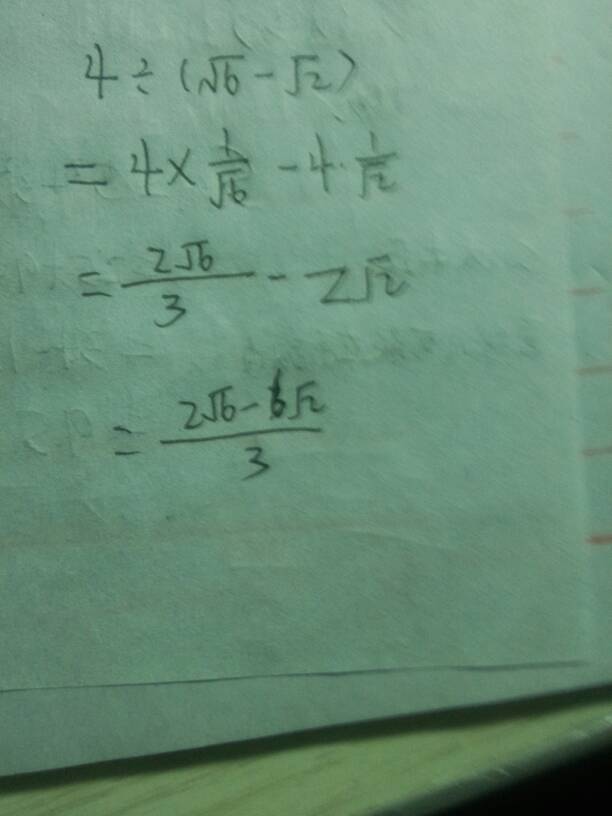 4÷(√6-√2)
=4×1/√6-4·1/√2
=2√6/3-2√2
=(2√6-6√2)/3